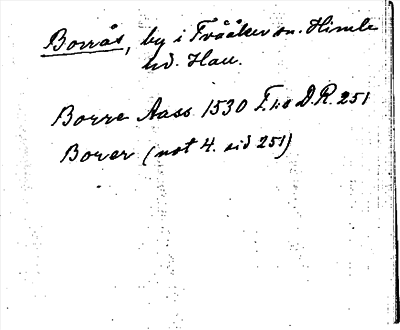 Borrås, by i Tvååker sn. Himle
hd. Hall.
Borre Aass 1530 F.I.s D.R. 251
Borer (not 4. sid 251)